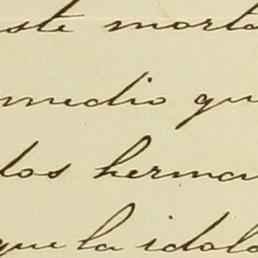 este morta
medio qu
dos herma
que la idola